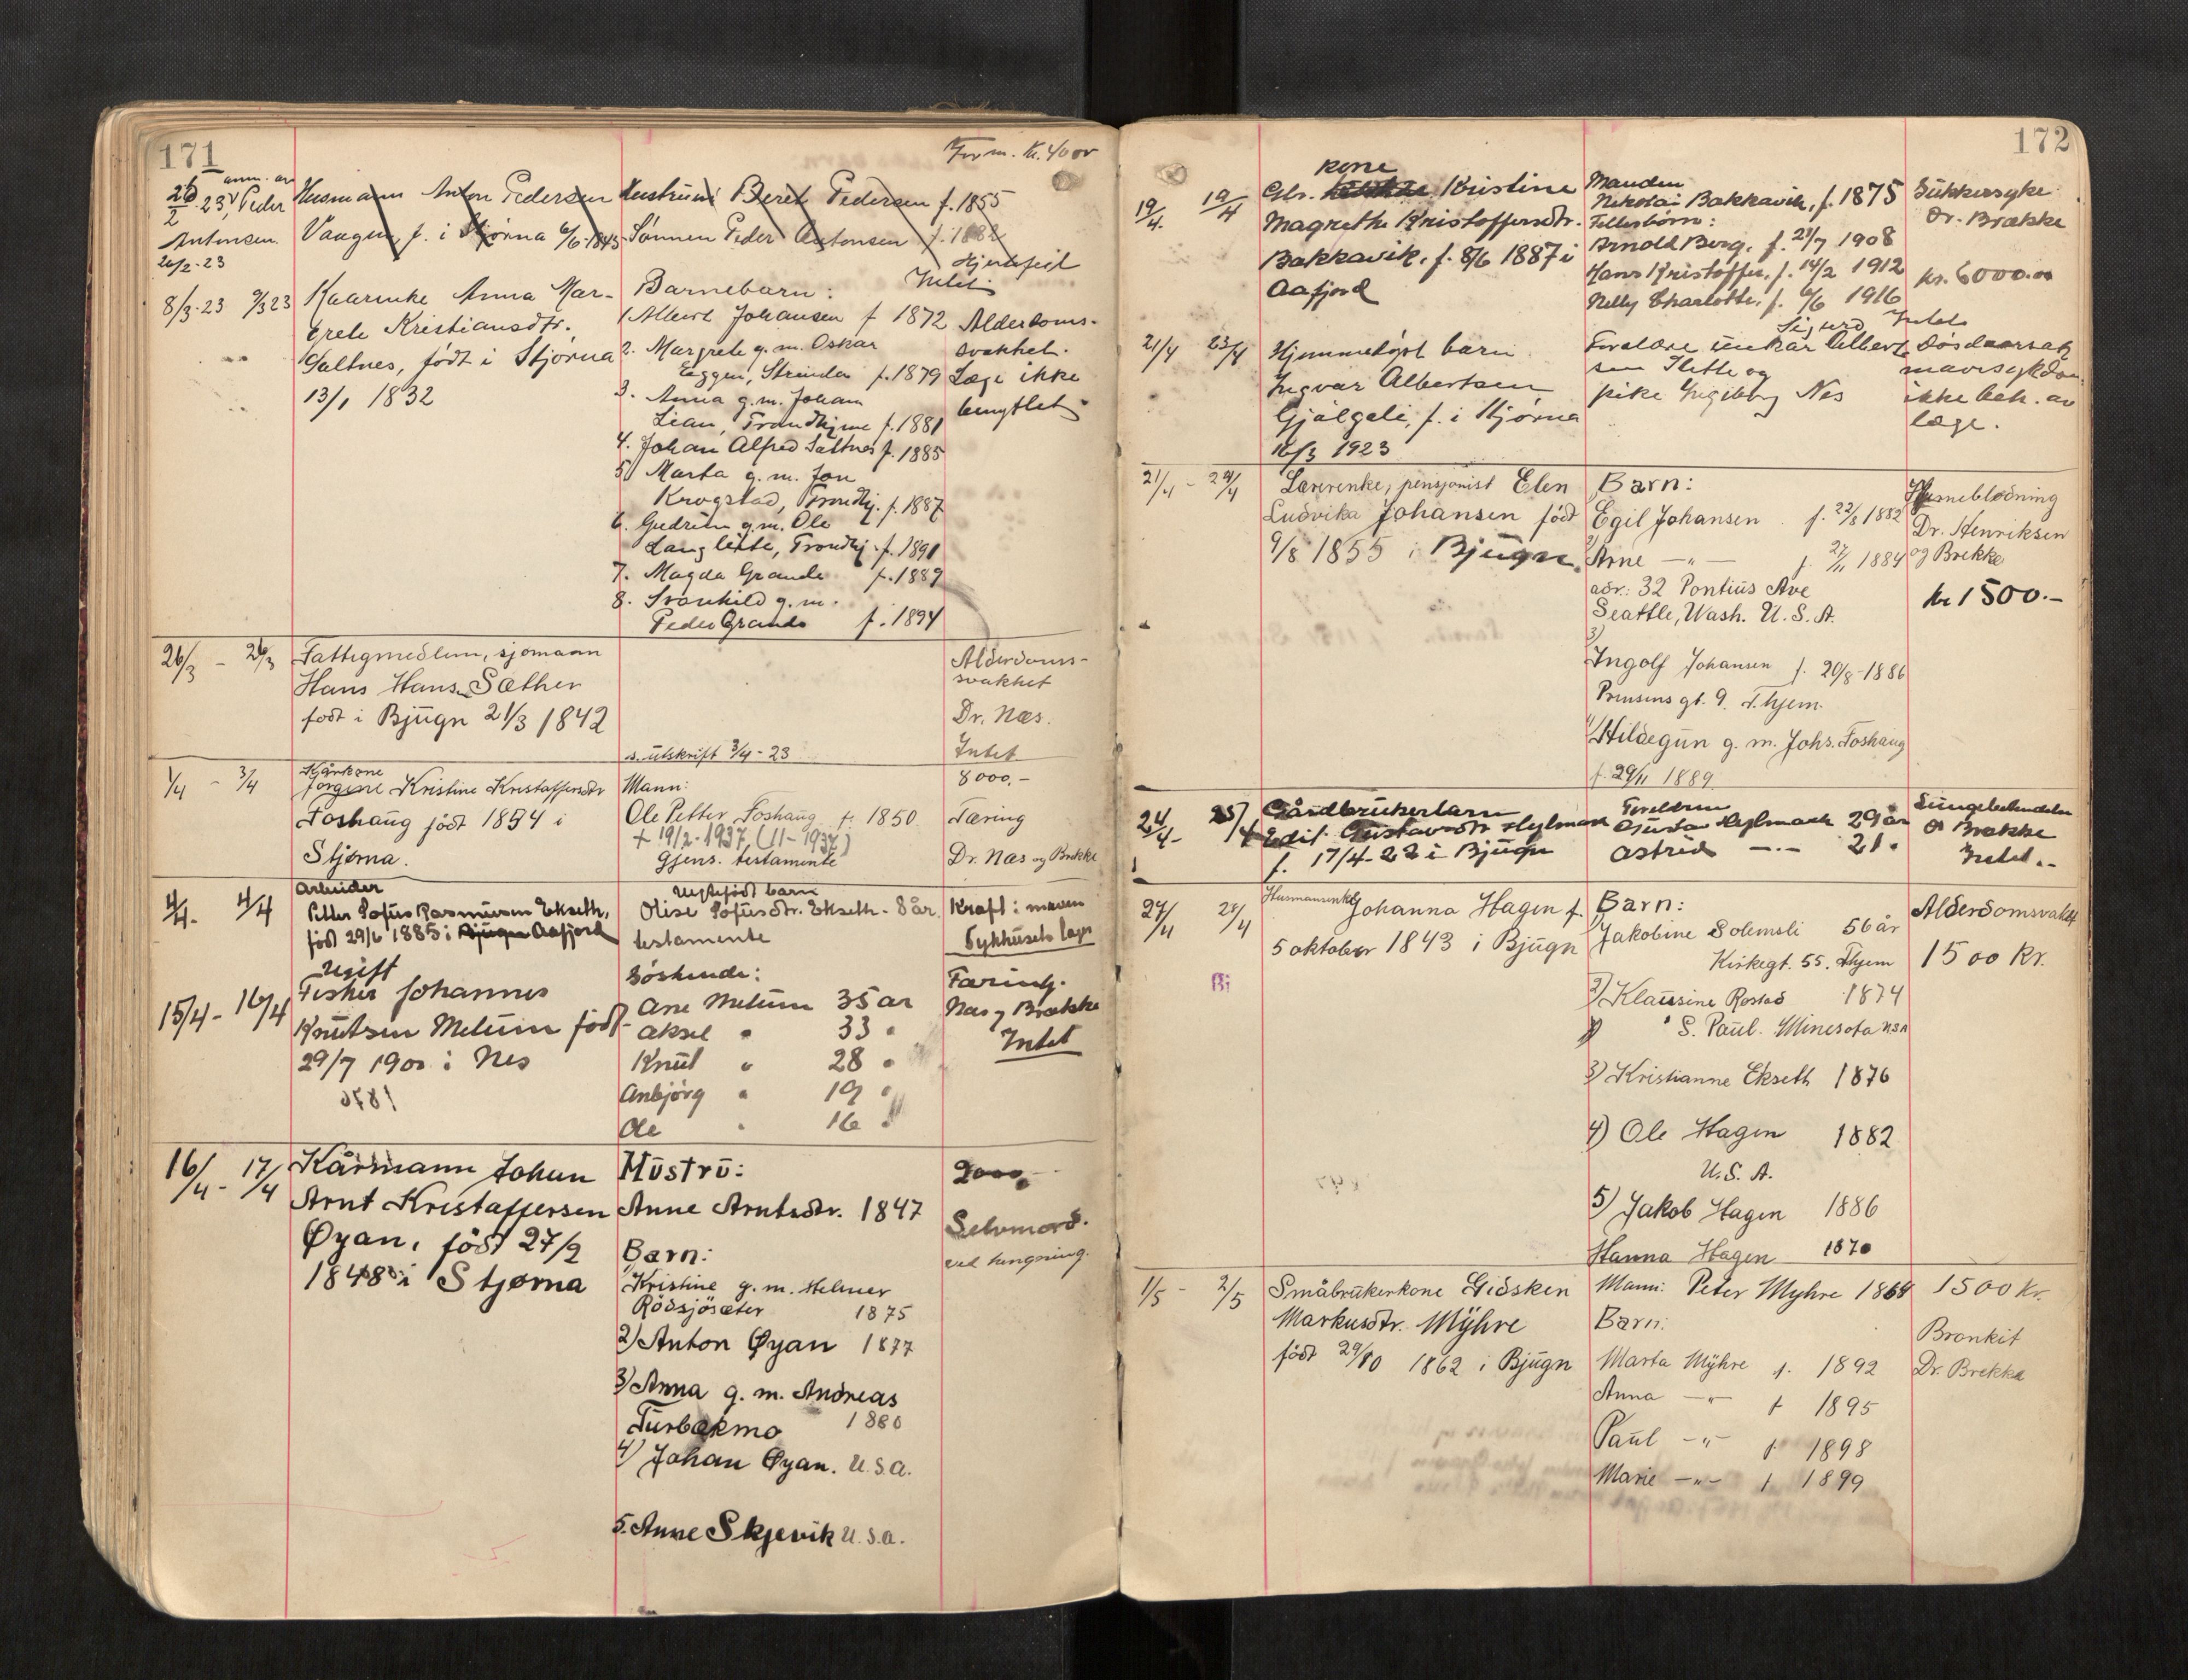 171
Form. kr. 4000
26/2 23, anm. av Peder Antonsen. 26/2-23
Husmann Anton Pedersen
Vangen, f. i Stjørna 6/6-1843
Hustru: Berit Pedersen f. 1855
Sønnen Peder Antonsen f. 1882
Hjertefeil
Intet
8/3-23 9/3 23
Kaarenke Anna Mar-
grete Kristiansdtr.
Saltnes, født i Stjørna
13/1 1832
Barnebarn:
1 Albert Johansen f 1872
2. Margrete g. m. Oskar
Eggen, Strinda f. 1879
3. Anna g. m. Johan
Lian, Trondhjem f. 1881
4. Johan Alfred Saltnes f. 1885
5) Marta g. m. Jon
Krogstad, Trondhj. f. 1887
6. Gudrun g. m. Ole
Langlette, Trondhj. f. 1890
7. Magda Grande f. 1889
8. Svanhild g. m.
Peder Grande f. 1894
Alderdoms-
svakhet.
Læge ikke
benyttet
26/3 - 26/3
Fattigmedlem, sjømann
Hans Hans. Sæther
født i Bjugn 21/3 1842
s. utskrift 3/4-23
Alderdoms-
svakhet
Dr. Næs.
Intet
1/4 - 3/4
Kårkone
Jørgine Kristine Kristaffersdtr
Foshaug født 1854 i
Stjørna.
Mann:
Ole Petter Foshaug f. 1850
+ 19/2-1937, (11-1937)
Gjens. testamente
8000,-
Tæring
Dr. Næs og Brekke
4/4. 4/4
Arbeider
Petter Sofus Rasmussen Ekseth,
født 29/6 1885 i Aafjord
Uegtefødt barn
Olise Sofusdtr. Ekseth - 8 år.
testamente
Kræft i maven
Sykhusets læge
15/4 - 16/4
Ugift
Fisker Johannes
Knutsen Melum født
29/7 1900 i Nes
Søskende:
Ane Melum 35 år
Aksel " 33 "
Knut " 28 "
Anbjørg " 19 "
Ole " 16 "
Tæring.
Næs og Brække
Intet
16/4 - 17/4
Kårmann Johan
Arnt Kristaffersen
Øyan, født 27/9
1848 i Stjørna
Hustru:
Anne Arntsdtr. 1847
Barn:
Kristine g. m. Helmer
Rödsjösæter 1875
2) Anton Øyan 1877
3) Anna g. m. Andreas
Turbekmo 1880
4) Johan Øyan. U.S.A.
5. Anne Skjervik U.S.A.
2000,-
Selvmord.
ved hængning.
172
19/4. 19/4
kone
Gbr. Kristine
Magrethe Kristoffersdtr.
Bakkavik, f. 8/6 1887 i
Aafjord
Manden
Nikolai Bakkavik, f. 1875
Fellesbörn:
Arnold Berg, f. 21/7 1908
Hans Kristoffer, f. 14/2 1912
Nelly Charlotte, f. 6/6 1916
Sukkersyke
Dr. Brække
kr. 6000.00
21/4 23/4
Hjemmedøpt barn
Ingvar Albertsen
Gjølgali, f. i Stjørna
16/3 1923
Forældre unkar Sigurd Albert-
sen Slette og
pike Ingibörg Nes
Intet
Dødsaarsak
mavesykdom
ikke beh. av
læge.
21/4 - 24/4
Lærerenke, pensjonist Elen
Ludvika Johansen født
9/8 1855 i Bjugn
Barn:
Egil Johansen f. 22/8 1882
Arne — " — f. 27/11 1884
adr.: 32 Pontius Ave
Seattle, Wash. U. S. A.
3)
Ingolf Johansen f. 20/8-1886
Prinsens gt. 9. T.hjem.
4) Hildegun g. m. Johs. Foshaug
f. 29/11 1889
Hjerneblødning
Dr. Henriksen
og Brekke
kr 1500.-
24/4- 25/4
Gårdbrukerbarn
Edit Gustavsdtr Hejlmack
f. 17/4-23 i Bjugn
Foreldrene
Gustav Hejlmack 29 år
Astrid — " — 21 "
Lungebetendelse
Dr Brække
Intet.-
27/4 28/4
Husmannsenke Johanna Hagen f.
5 oktober 1843 i Bjugn
Bj
Barn:
Jakobine Solemsli 56 år
Kirkegt. 55. Thjem
2) Klausine Rostad 1874
S. Paul. Minesota USA
3) Kristianne Ekseth 1876
4) Ole Hagen 1882
U. S. A.
5) Jakob Hagen 1886
Hanna Hagen 1870
Alderdomsvakh
1500 Kr.
1/5 - 2/5
Småbrukerkone Gidsken
Markusdtr. Myhre
født 29/10 1862 i Bjugn
Mann: Peter Myhre 1864
Barn:
Marta Myhre f. 1892
Anna — " — f 1895
Paul — " — f. 1898
Marie — " — f 1899
1500 kr.
Bronkit
Dr. Brekke